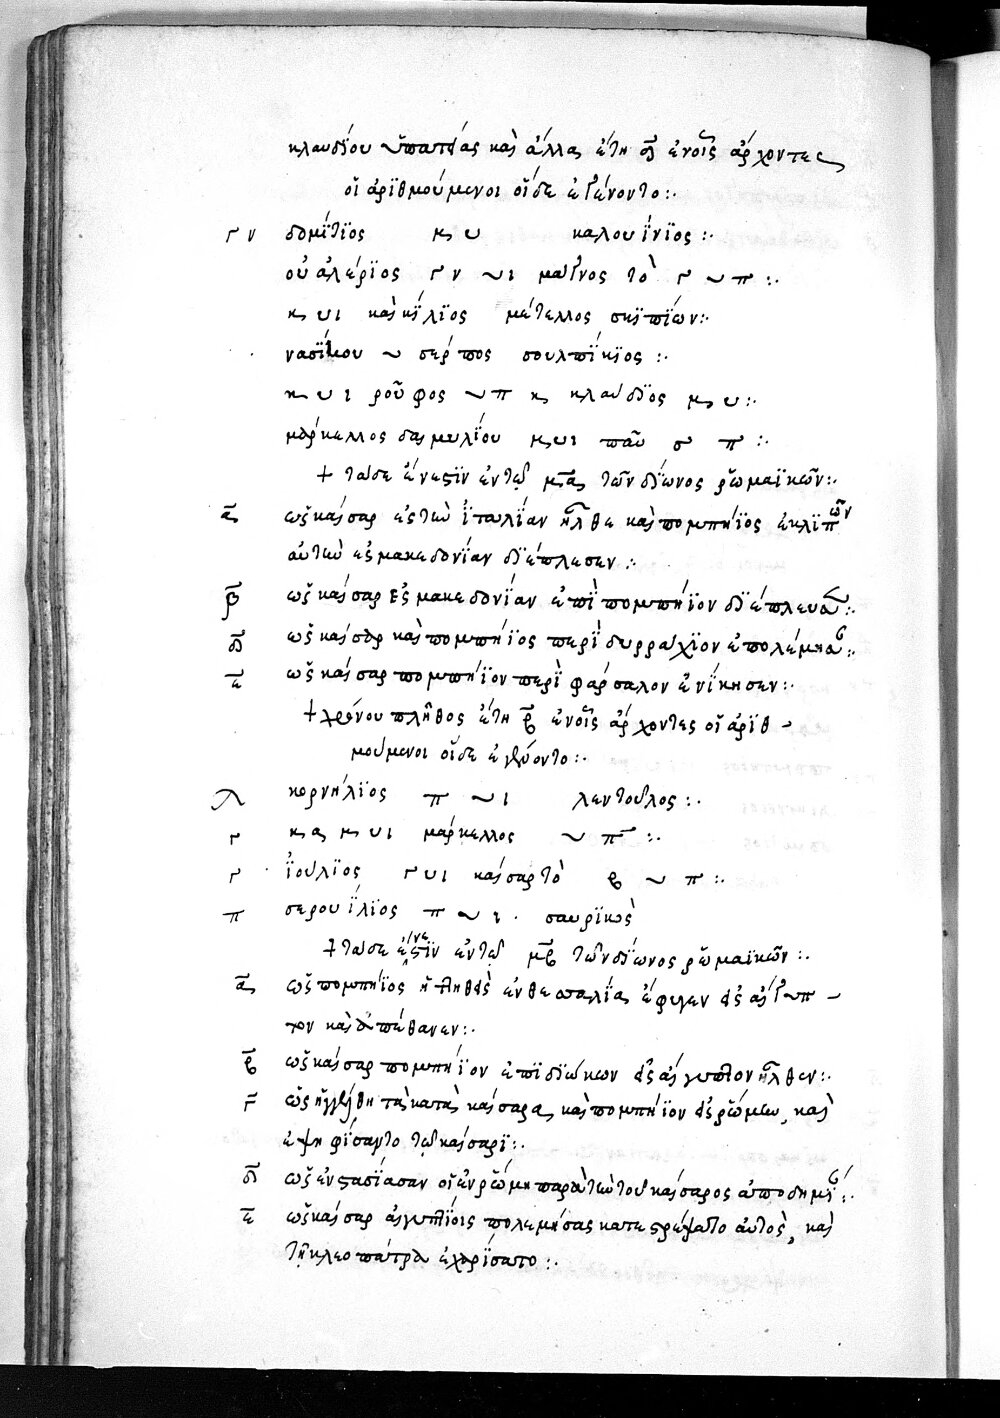 κλαυδίου ὑπατείας καὶ ἄλλα ἔτη δ̅ ἐν οἷς ἄρχοντες
οἱ ἀριθμούμενοι οἵδε ἐγένοντο:·
γν δομίτιος κ υ καλουΐνιος:·
οὐαλέριος γν υι μάγνος τὸ γ υ π:·
κ υι καικήλιος μέτελλος σκιπίων:·
νασίκου υ σέρπος σουλπίκιος:·
κ υ ι ῥοῦφος υπ κ κλαύδιος μ υ:·
μάρκελλος δαμυλίου κ υι παῦ σ π:·
+ τάδε ἔνεστιν ἐν τῷ μ̅α̅ τῶν δίωνος ῥωμαϊκῶν:·
α̅ ὡς καίσαρ ἐς τὴν ἰταλίαν ἦλθε καὶ πομπήϊος ἐκλιπὼν
αὐτὴν ἐς μακεδονίαν διέπλευσεν:·
β̅ ὡς καίσαρ ἐς μακεδονίαν ἐπὶ πομπήϊον διέπλευσεν:·
δ̅ ὡς καίσαρ καὶ πομπήϊος περὶ δυρράχιον ἐπολέμησαν:·
ε̅ ὡς καίσαρ πομπήϊον περὶ φάρσαλον ἐνίκησεν:·
+ χρόνου πλῆθος ἔτη β̅ ἐν οἷς ἄρχοντες οἱ ἀριθ-
μούμενοι οἵδε ἐγένοντο:·
λ κορνήλιος π υι λεντοῦλος:·
γ κ α κ υι μάρκελλος υ π:·
γ ἰούλιος γ υι καίσαρ τὸ β υ π:·
π σερουΐλιος π υ ι. σαυρικὸς
+ τάδε ἔνεστιν ἐν τῷ μ̅β̅ τῶν δίωνος ῥωμαϊκῶν:·
α̅ ὡς πομπήϊος ἡττηθεὶς ἐν θεσσαλίᾳ ἔφυγεν εἰς αἴγυπ-
τον καὶ ἀπέθανεν:·
β̅ ὡς καίσαρ πομπήϊον ἐπιδιώκων εἰς αἴγυπτον ἦλθεν:·
γ̅ ὡς ἠγγέλθη τὰ κατὰ καίσαρα καὶ πομπήϊον εἰς ῥώμην, καὶ
ἐψηφίσαντο τῷ καίσαρι:·
δ̅ ὡς ἐνστασίασαν οἱ ἐν ῥώμῃ παρὰ τὴν τοῦ καίσαρος ἀποδημίαν:·
ε̅ ὡς καίσαρ αἰγυπτίοις πολεμήσας κατεστρέψατο αὐτοὺς, καὶ
τῇ κλεοπάτρᾳ ἐχαρίσατο:·